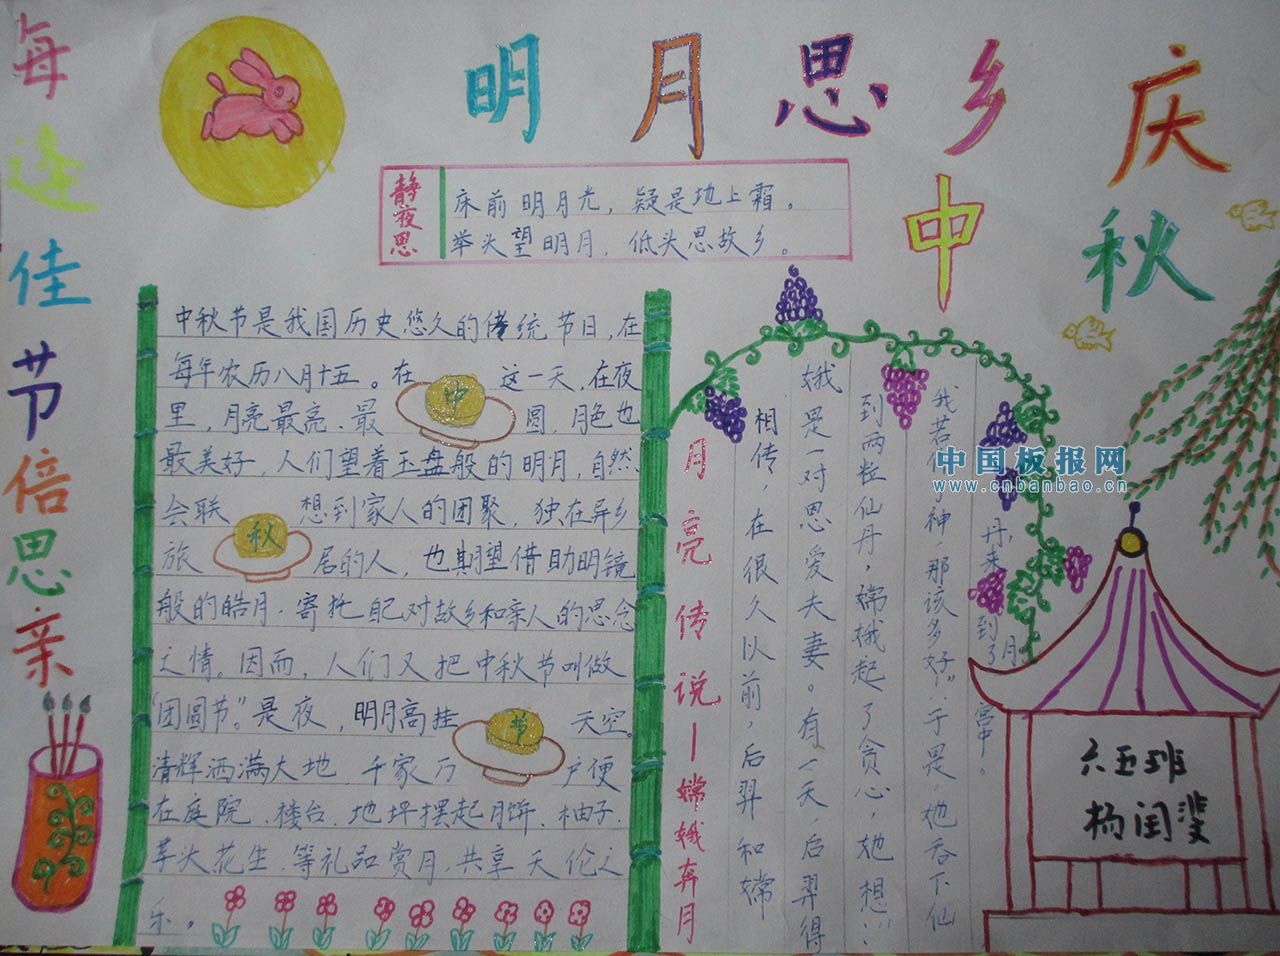 每逢佳节倍思亲
明月思乡
庆
中秋
静夜思
床前明月光，疑是地上霜。
举头望明月，低头思故乡。
中秋节是我国历史悠久的传统节日，在
每年农历八月十五。在 中 这一天，在夜
里，月亮最亮、最 圆，月色也
最美好，人们望着玉盘般的明月，自然
会联 想到家人的团聚，独在异乡
旅 秋 居的人，也期望借助明镜
般的皓月，寄托自己对故乡和亲人的思念
之情。因而，人们又把中秋节叫做
“团圆节”。是夜，明月高挂 节 天空。
清辉洒满大地，千家万 户便
在庭院、楼台、地坪摆起月饼、柚子、
芋头花生、等礼品赏月，共享天伦之
乐。
月亮传说—嫦娥奔月
相传，在很久以前，后羿和嫦
娥是一对恩爱夫妻。有一天，后羿得
到两粒仙丹，嫦娥起了贪心，她想：“
我若做神，那该多好”。于是，她吞下仙
丹，来到了月宫中。
中国板报网
www.cnbanbao.cn
六五班
杨闰